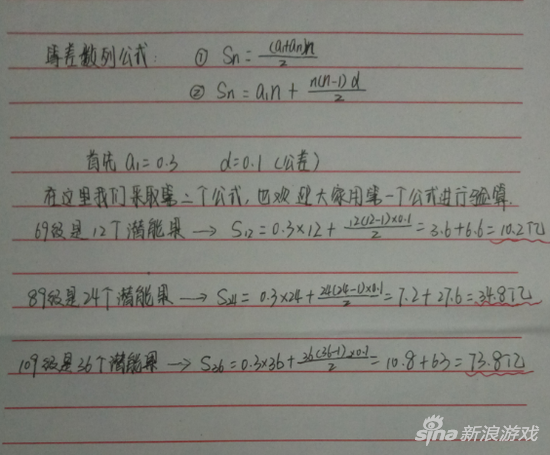 等差数列公式: ① Sn=(a₁+an)n/2
② Sn=a₁n+n(n-1)d/2
首先 a₁=0.3 d=0.1 (公差)
在这里我们采取第二个公式,也欢迎大家用第一个公式进行验算.
69级是12个潜能果 → S₁₂=0.3×12+12(12-1)×0.1/2=3.6+6.6=10.2亿
89级是24个潜能果 → S₂₄=0.3×24+24(24-1)×0.1/2=7.2+27.6=34.8亿
109级是36个潜能果 → S₃₆=0.3×36+36(36-1)×0.1/2=10.8+63=73.8亿
sina新浪游戏